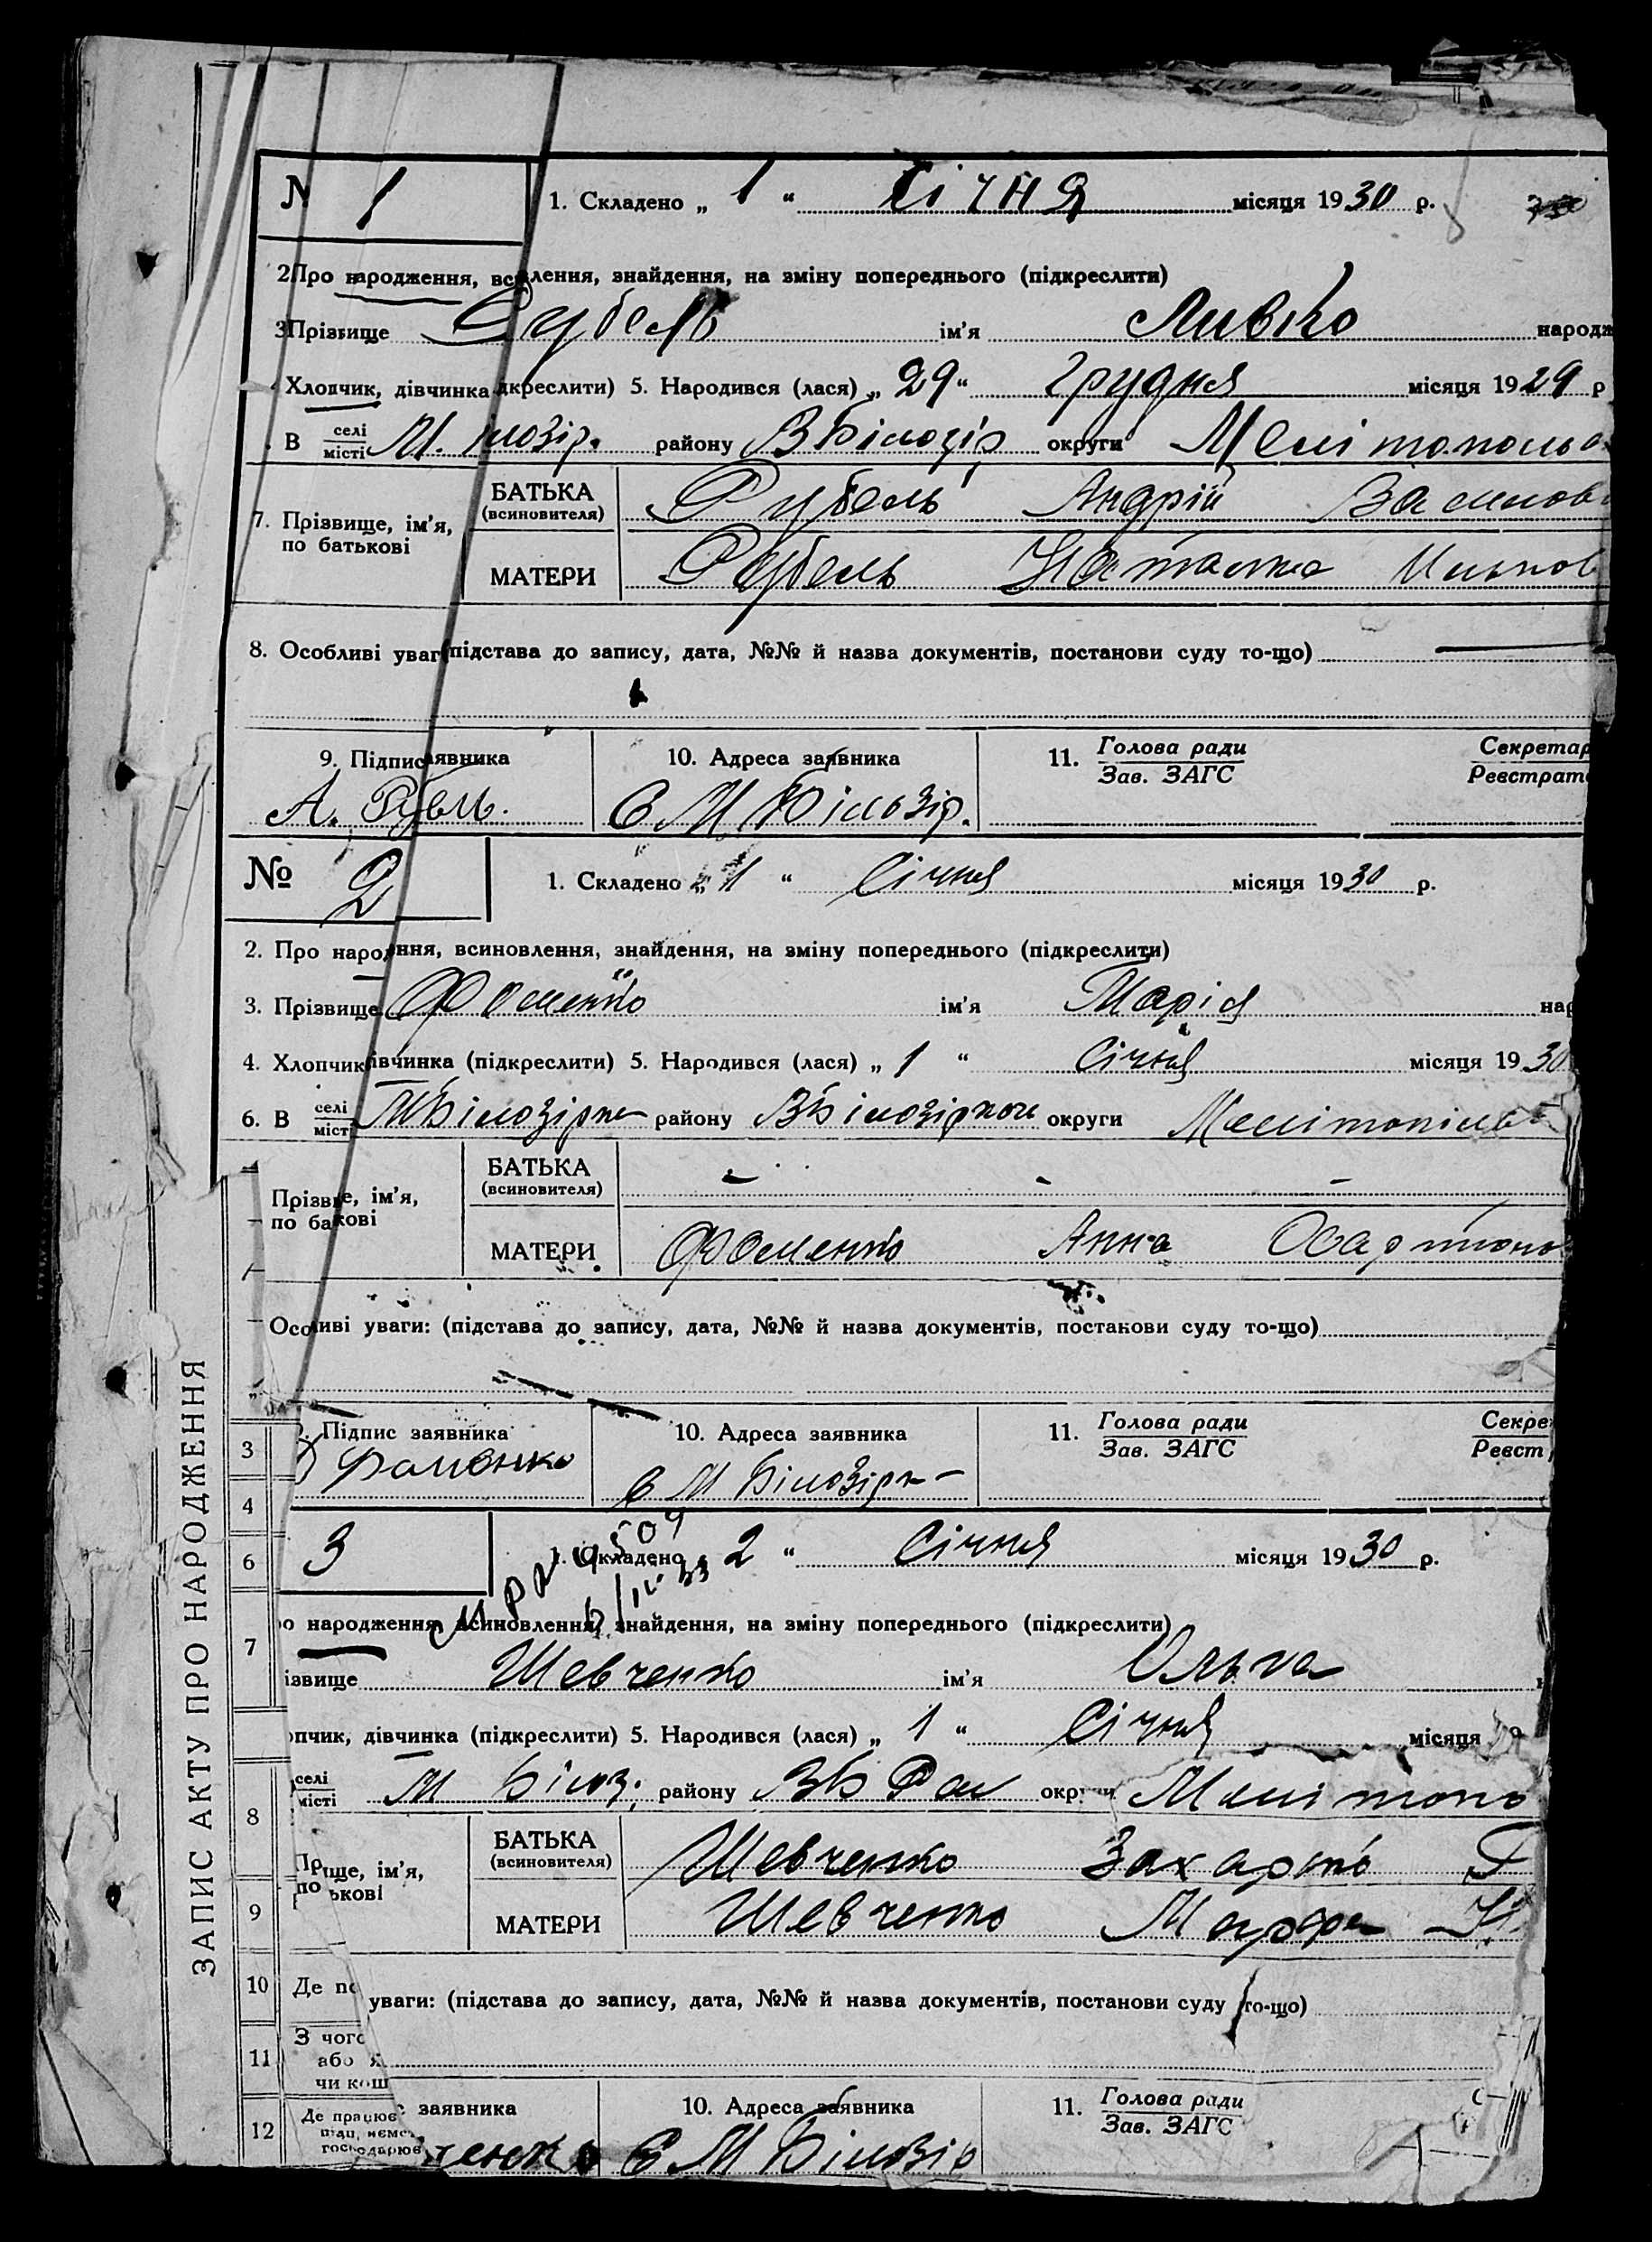 № 1
1. Складено „ 1 “ Січня місяця 1930 р.
2 Про народження, всилення, знайдення, на зміну попереднього (підкреслити)
3 Прізвище Рубель ім'я народж
Хлопчик, дівчинка дкреслити) 5. Народився (лася) „ 29 “ Грудня місяця 1929 р
В селі місті М. ілозір. району округи Мелітополь
7. Прізвище, ім'я, по батькові
БАТЬКА (всиновителя) Рубель Андрій
МАТЕРИ Рубель Наталка
8. Особливі уваг (підстава до запису, дата, №№ й назва документів, постанови суду то-що)
9. Підпис аявника 10. Адреса заявника 11. Голова ради Секретар
Зав. ЗАГС Реєстрато
А. Рубль. с М Білозір.
№ 2
1. Складено „ 1 “ Січня місяця 1930 р.
2. Про народ ння, всиновлення, знайдення, на зміну попереднього (підкреслити)
3. Прізвище Фоменко ім'я Марія нар
4. Хлопчик івчинка (підкреслити) 5. Народився (лася) „ 1 “ Січня місяця 1930
6. В селі міст МБілозірка району ВБілозіркою округи Мелітопільс
Прізв е, ім'я, по ба кові
БАТЬКА (всиновителя) - - -
МАТЕРИ Фоменко Анна
Осо иві уваги: (підстава до запису, дата, №№ й назва документів, постанови суду то-що)
Підпис заявника 10. Адреса заявника 11. Голова ради Секре
Зав. ЗАГС Реєст
Фоменко с М Білозірк
3
1. Складено „ 2 “ Січня місяця 1930 р.
о народження, всиновлення, знайдення, на зміну попереднього (підкреслити)
ізвище Шевченко ім'я Ольга
опчик, дівчинка (підкреслити) 5. Народився (лася) „ 1 “ Січня місяця
селі місті М Білоз. району ВБ округи Мелітопо
Пр ище, ім'я, по ькові
БАТЬКА (всиновителя) Шевченко Захарко Г
МАТЕРИ Шевченко Марфа
уваги: (підстава до запису, дата, №№ й назва документів, постанови суду то-що)
заявника 10. Адреса заявника 11. Голова ради
Зав. ЗАГС
ченко с М Білозір
ЗАПИС АКТУ ПРО НАРОДЖЕННЯ
3
4
6
7
8
9
10 Де по
11 З чого
або я
чи кош
12 Де працює
господарює